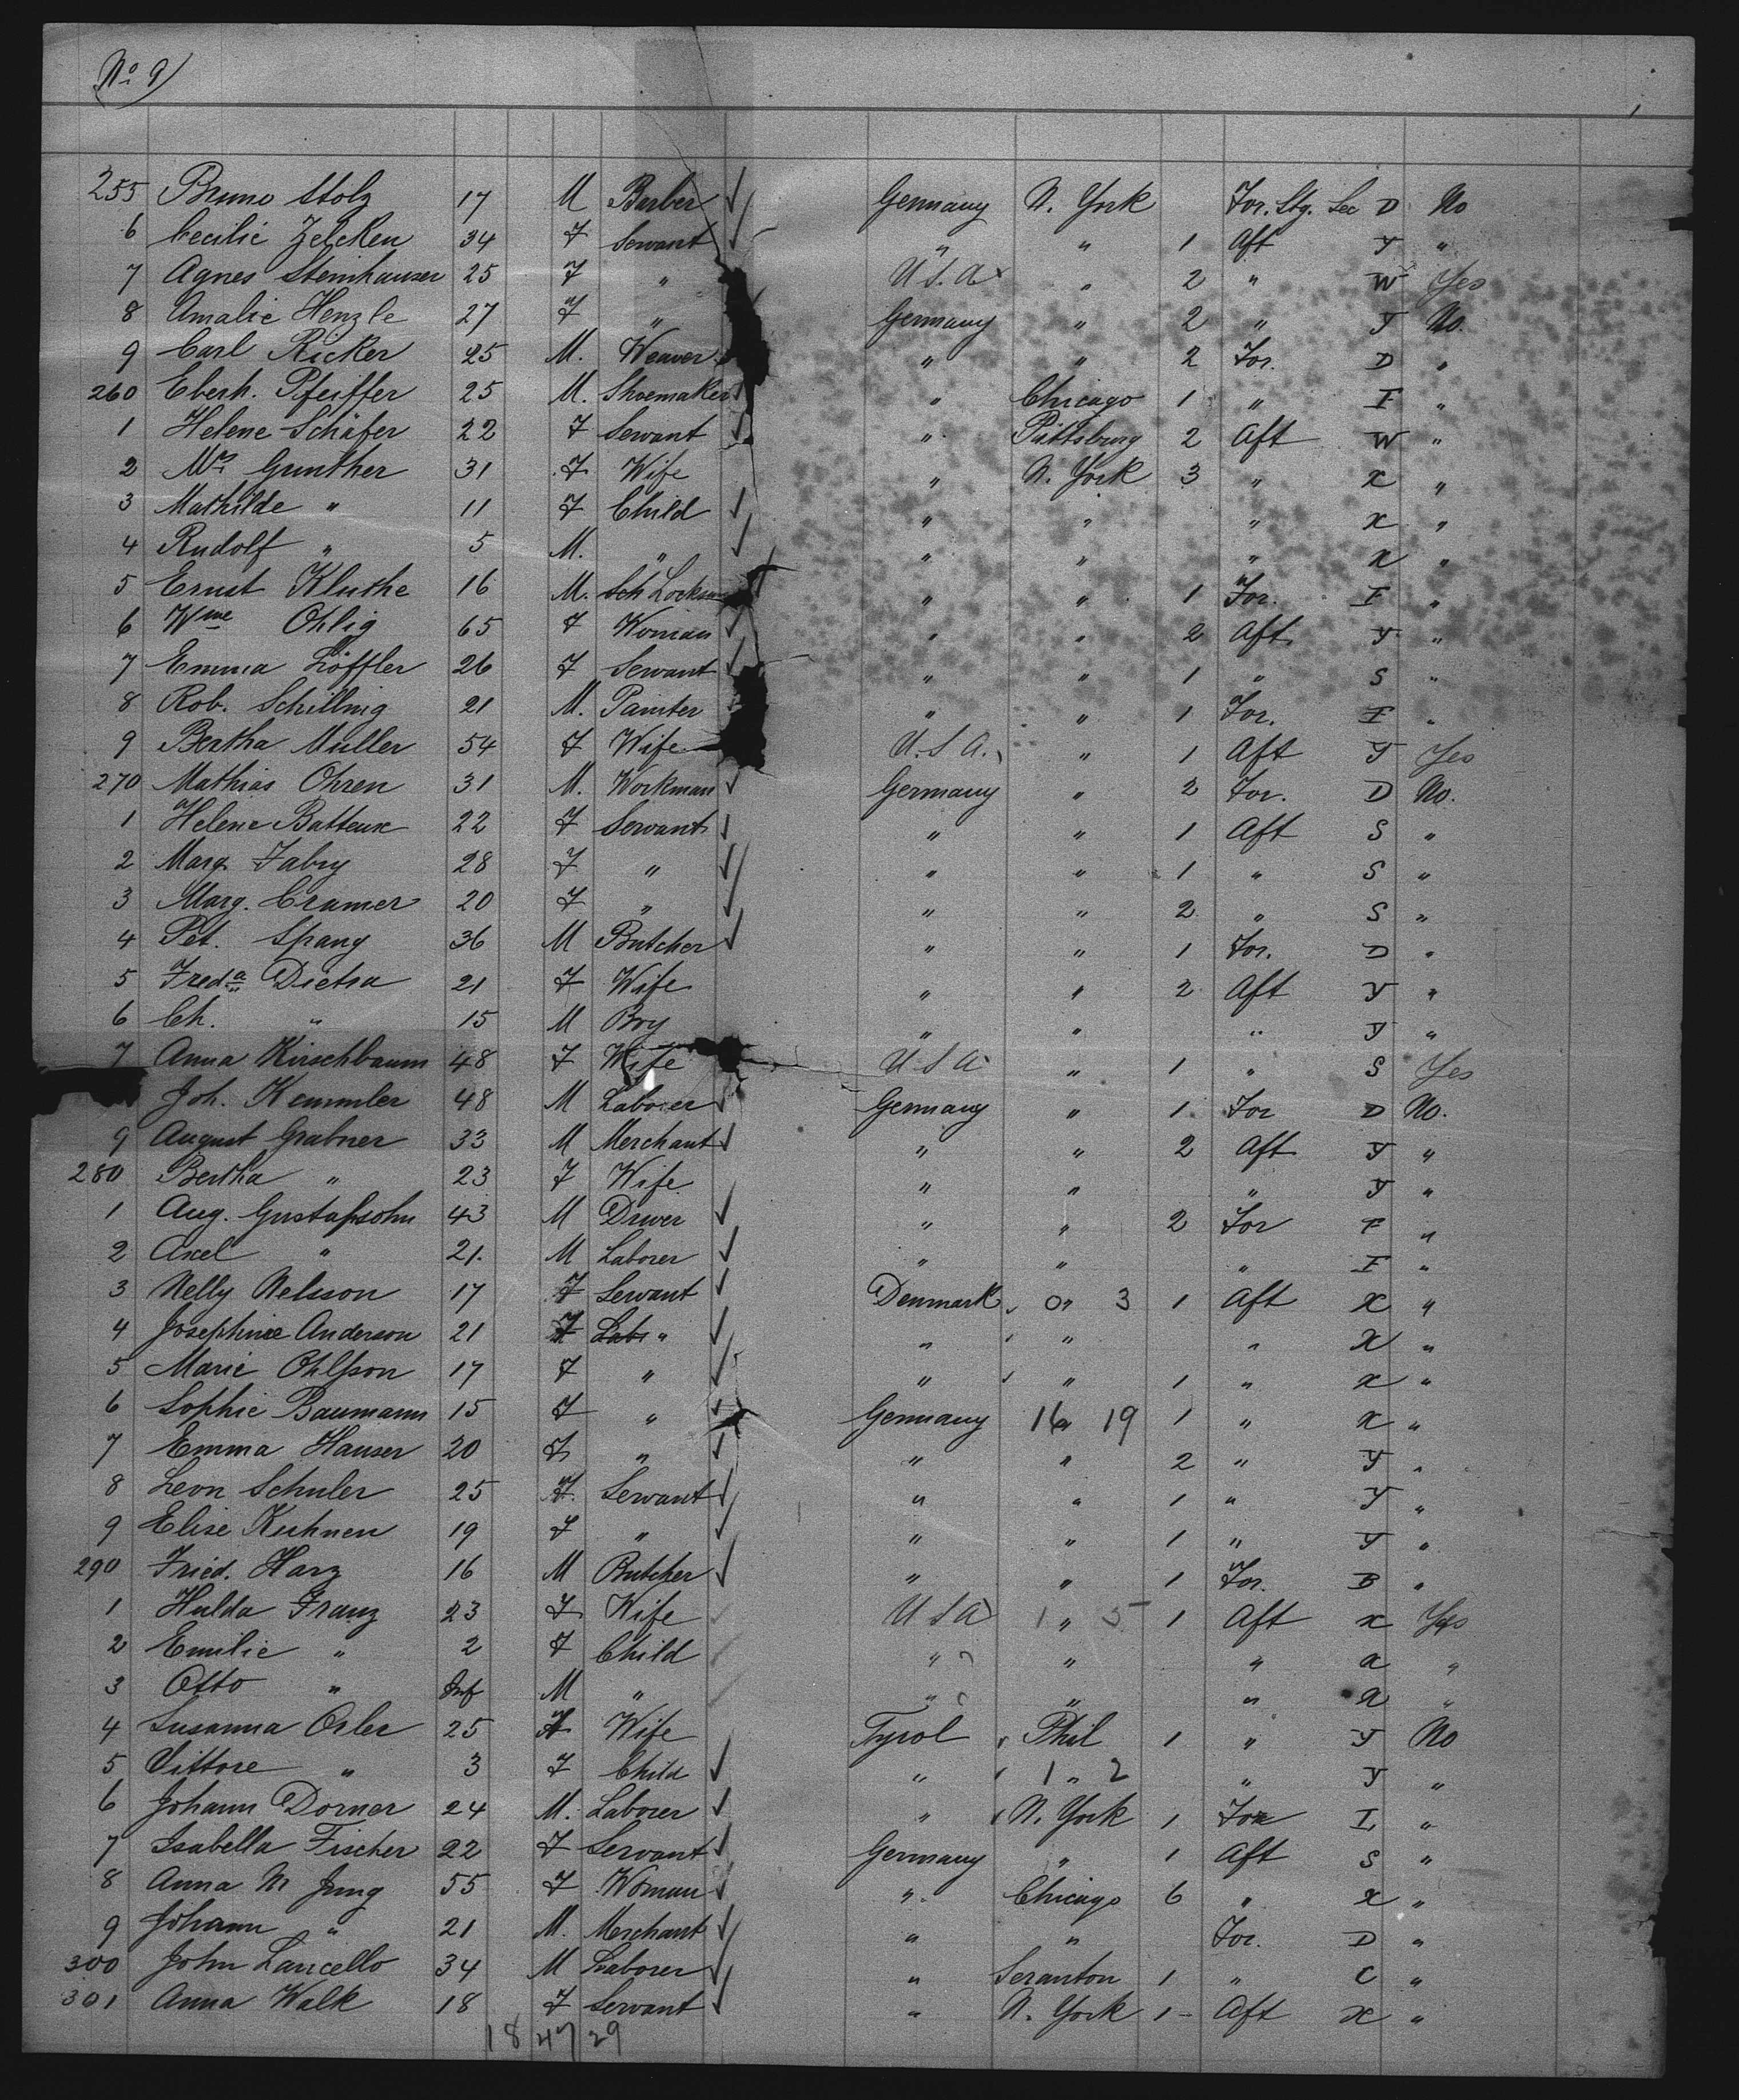 No 9
255 Bruno Stolz 17 M Barber Germany N. York For. Stg. Sec D No
6 Cecilie Zelcken 34 F Servant " " 1 Aft Y "
7 Agnes Steinhauser 25 F " U.S.A " 2 " W Yes
8 Amalie Henzle 27 F " Germany " 2 " Y No.
9 Carl Ricker 25 M. Weaver " " 2 For. D "
260 Eberh. Pfeiffer 25 M. Shoemaker " Chicago 1 " I "
1 Helene Schäfer 22 F Servant " Pittsburg 2 Aft W "
2 Mrs Gunther 31 F Wife " N. York 3 " X "
3 Mathilde " 11 F Child " " " X "
4 Rudolf " 5 M. " " " " X "
5 Ernst Kluthe 16 M. Sch " " 1 For. I "
6 Wme Ohlig 65 F Woman " " 2 Aft Y "
7 Emma Löffler 26 F Servant " " 1 " S "
8 Rob. Schilling 21 M. Painter " " 1 For. I "
9 Bertha Müller 54 F Wife U.S.A. " 1 Aft Y Yes
270 Mathias Ohren 31 M. Workman Germany " 2 For. D No.
1 Helene Batteux 22 F Servant " " 1 Aft S "
2 Marg. Fabry 28 F " " " 1 " S "
3 Marg. Cramer 20 F " " " 2 " S "
4 Pet. Spang 36 M Butcher " " 1 For. D "
5 Freda Dietra 21 F Wife " " 2 Aft Y "
6 Ch. " 15 M Boy " " " Y "
7 Anna Kirschbaum 48 F Wife U S A " 1 " S Yes
Joh. Kemmler 48 M Laborer Germany " 1 For D No.
9 August Grabner 33 M Merchant " " 2 Aft Y "
280 Bertha " 23 F Wife " " " Y "
1 Aug. Gustafsohn 43 M Driver " " 2 For I "
2 Axel " 21. M Laborer " " " I "
3 Nelly Nelsson 17 F Servant Denmark 0 " 3 1 Aft X "
4 Josephine Anderson 21 F Lab. " " " " X "
5 Marie Ohlsson 17 F " " " 1 " X "
6 Sophie Baumann 15 F " Germany 16 " 19 1 " X "
7 Emma Hauser 20 F " " " 2 " Y "
8 Leon Schuler 25 F. Servant " " 1 " Y "
9 Elise Kuhnen 19 F " " " 1 " Y "
290 Fried. Harz 16 M Butcher " " 1 For. B "
1 Hulda Franz 23 F Wife U S A 1 " 5 1 Aft X Yes
2 Emilie " 2 F Child " " " a "
3 Otto " Inf M " " " " a "
4 Susanna Orler 25 F Wife Tyrol Phil 1 " Y No
5 Vittore " 3 F Child " 1 " 2 " Y "
6 Johann Dorner 24 M. Laborer " N. York 1 For I "
7 Isabella Fischer 22 F Servant Germany " 1 Aft S "
8 Anna M Jung 55 F Woman " Chicago 6 " X "
9 Johann " 21 M. Merchant " " For. D "
300 John Lancello 34 M Laborer " Scranton 1 " C "
301 Anna Walk 18 F Servant " N. York 1 - Aft X "
18 47 29